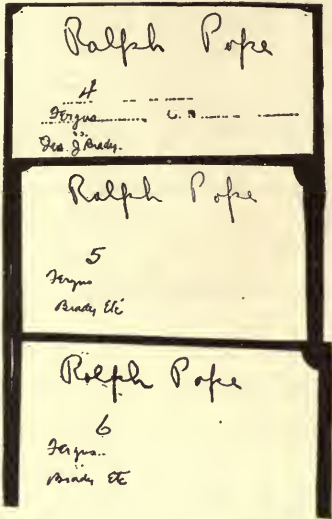 Ralph Pope
4
Fergus
Jas. J Brady.
Ralph Pope
5
Fergus
Brady Etc
Ralph Pope
6
Fergus..
Brady Etc